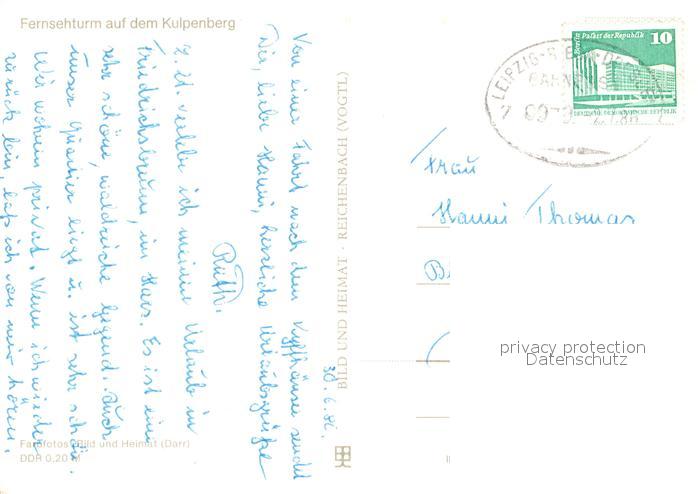 Fernsehturm auf dem Kulpenberg
30.6.86.
Von einer Fahrt nach dem Kyffhäuser sendet
Dir, liebe Hanni, herzliche Urlaubsgrüße
Ruth.
Z. Zt. verlebe ich meinen Urlaub in
Friedrichsbrunn, im Harz. Es ist eine
sehr schöne, waldreiche Gegend. Auch
unser Quartier liegt u. ist sehr schön.
Wir wohnen privat. Wenn ich wieder
zurück bin, laß ich von mir hören.
Farbfotos: Bild und Heimat (Darr)
DDR 0,20 M
BILD UND HEIMAT · REICHENBACH (VOGTL)
LEIPZIG
BAHN
Berlin Palast der Republik
10
DEUTSCHE DEMOKRATISCHE REPUBLIK
Frau
Hanni Thomas
privacy protection
Datenschutz